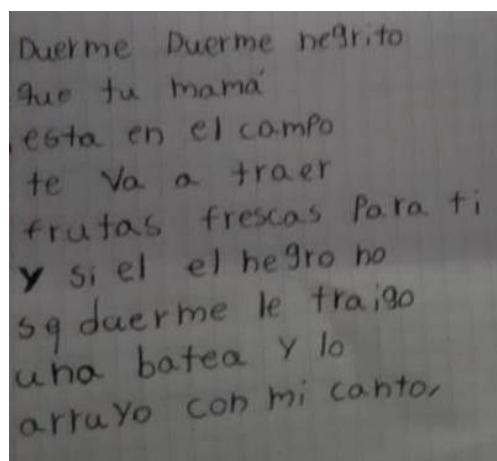 Duerme Duerme negrito
que tu mamá
esta en el campo
te va a traer
frutas frescas para ti
y si el el negro no
sq duerme le traigo
una batea y lo
arruyo con mi canto,